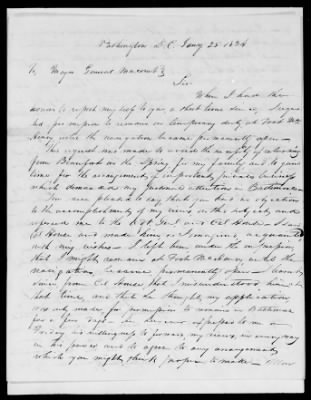 Washington D.C. Jany 25 1834
To Major General Macomb
Sir
When I had the
honor to report myself to you a short time since, I reques
ted permission to remain on temporary duty at Fort Mc
Henry until the navigation became permanently open
This request was made to avoid the necessity of returning
from Beaufort in the Spring for my family and to gain
time for the arrangement of important private business
which demanded my personal attention in Baltimore
You were pleased to say that you had no objection
to the accomplishment of my views on this subject and
referred me to the Adt Genl and Col House. I saw
Col House and made him as I imagined acquainted
with my wishes. I left him under the impression
that I might remain at Fort McHenry until the
navigation became permanently open. I learn
since from Col House that I misunderstood him at
that time, and that he thought my application
was only made for permission to remain in Baltimore
for a few days. he however expressed to me on
Friday his willingness to forward my views in every way
in his power and to agree to any arrangement
which you might think proper to make. Allow